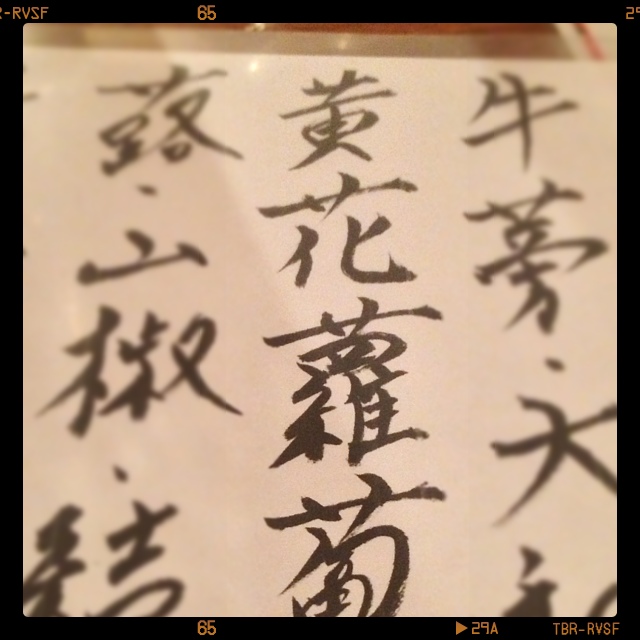 R-RVSF 65 29
牛蒡・大
黄花蘿蔔
蕗・山椒・結
65 ▶29A TBR-RVSF